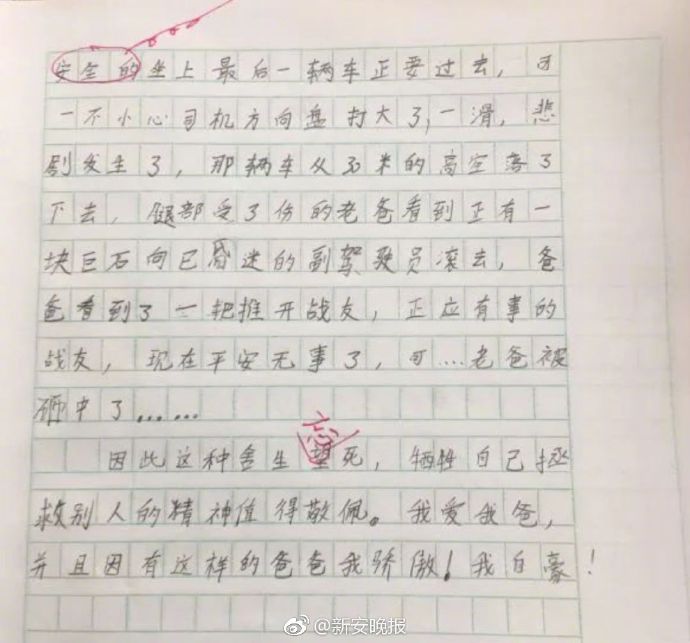 安全的坐上最后一辆车正要过去，可
一不小心司机方向盘打大了，一滑，悲
剧发生了，那辆车从30米的高空落了
下去，腿部受了份的老爸看到正有一
块巨石向已昏迷的副驾驶员滚去，爸
爸看到了一把推开战友，正应有事的
战友，现在平安无事了，可....老爸被
砸中了......
忘
因此这种舍生望死，牺牲自己拯
救别人的精神值得敬佩。我爱我爸，
并且因有这样的爸爸我骄傲！我自豪！
@新安晚报